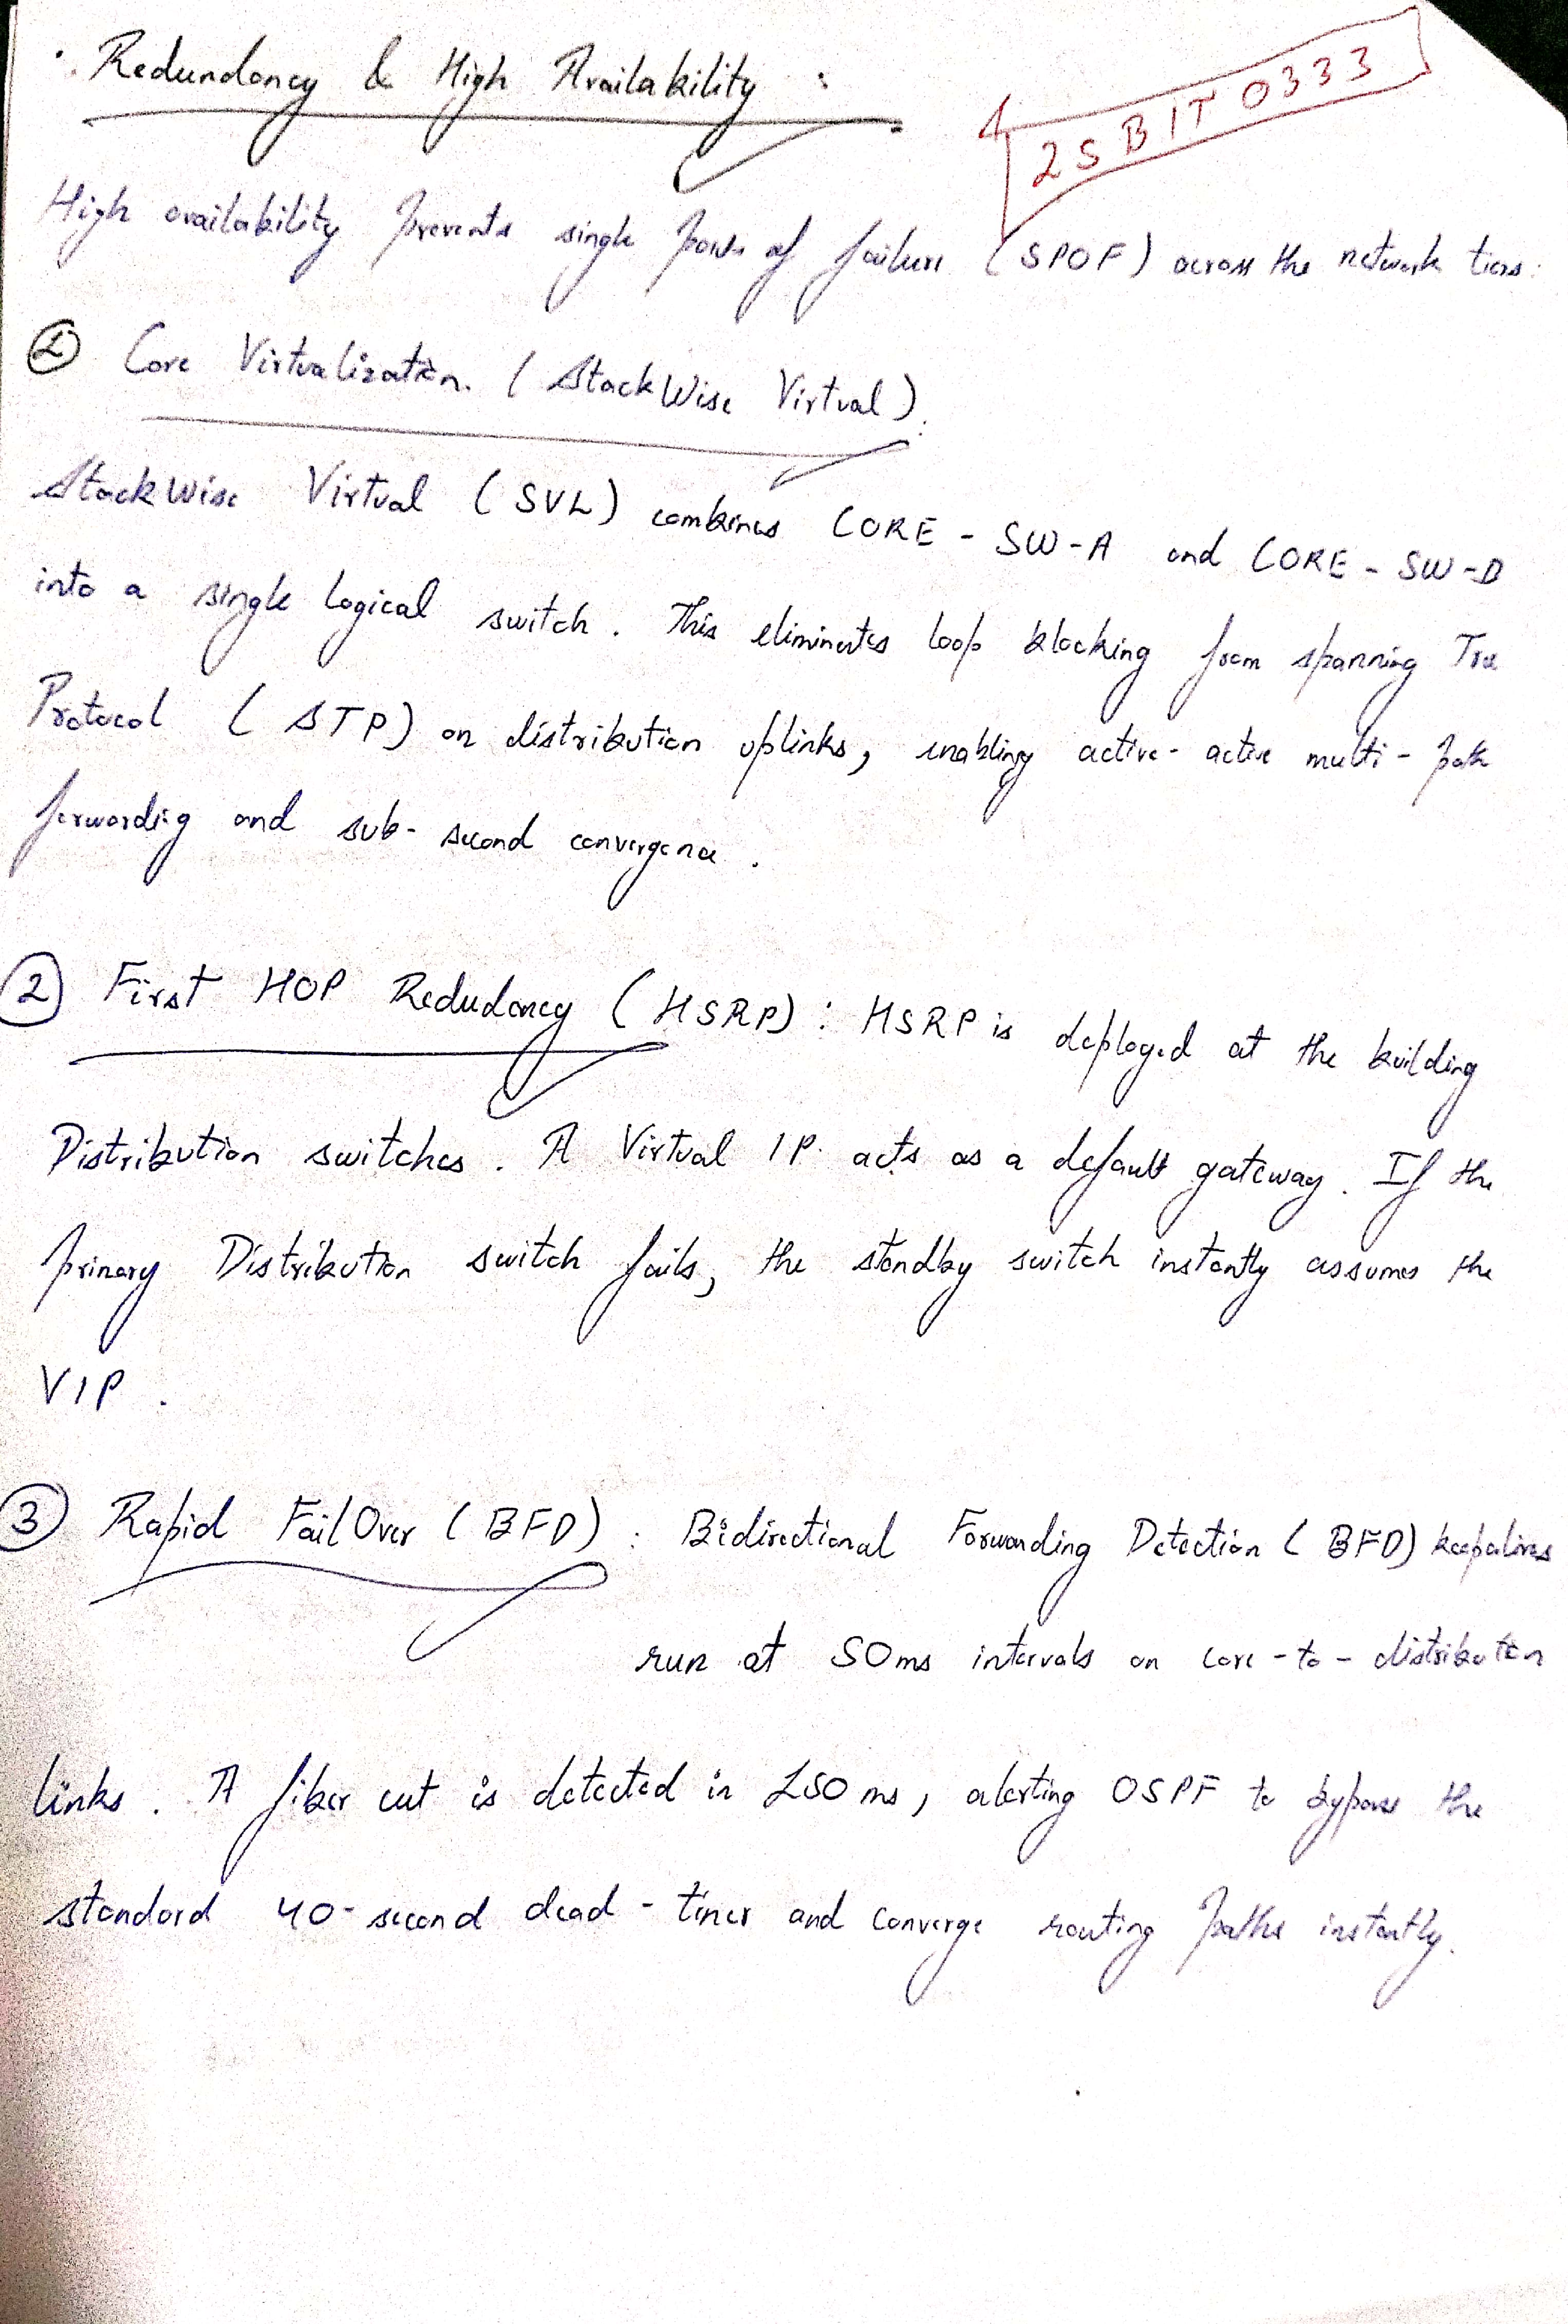 Redundancy & High Availability :
25BIT0333
High availability prevents single points of failure (SPOF) across the network tiers:
① Core Virtualization. (StackWise Virtual):
StackWise Virtual (SVL) combines CORE-SW-A and CORE-SW-B
into a single logical switch. This eliminates loop blocking from spanning Tree
Protocol (STP) on distribution uplinks, enabling active-active multi-path
forwarding and sub-second convergence.
② First HOP Redudancy (HSRP): HSRP is deployed at the building
Distribution switches. A Virtual IP acts as a default gateway. If the
primary Distribution switch fails, the standby switch instantly assumes the
VIP.
③ Rapid FailOver (BFD): Bidirectional Forwarding Detection (BFD) keepalives
run at 50ms intervals on core-to-distribution
links. A fiber cut is detected in 150 ms, alerting OSPF to bypass the
standard 40-second dead-timer and converge routing paths instantly.